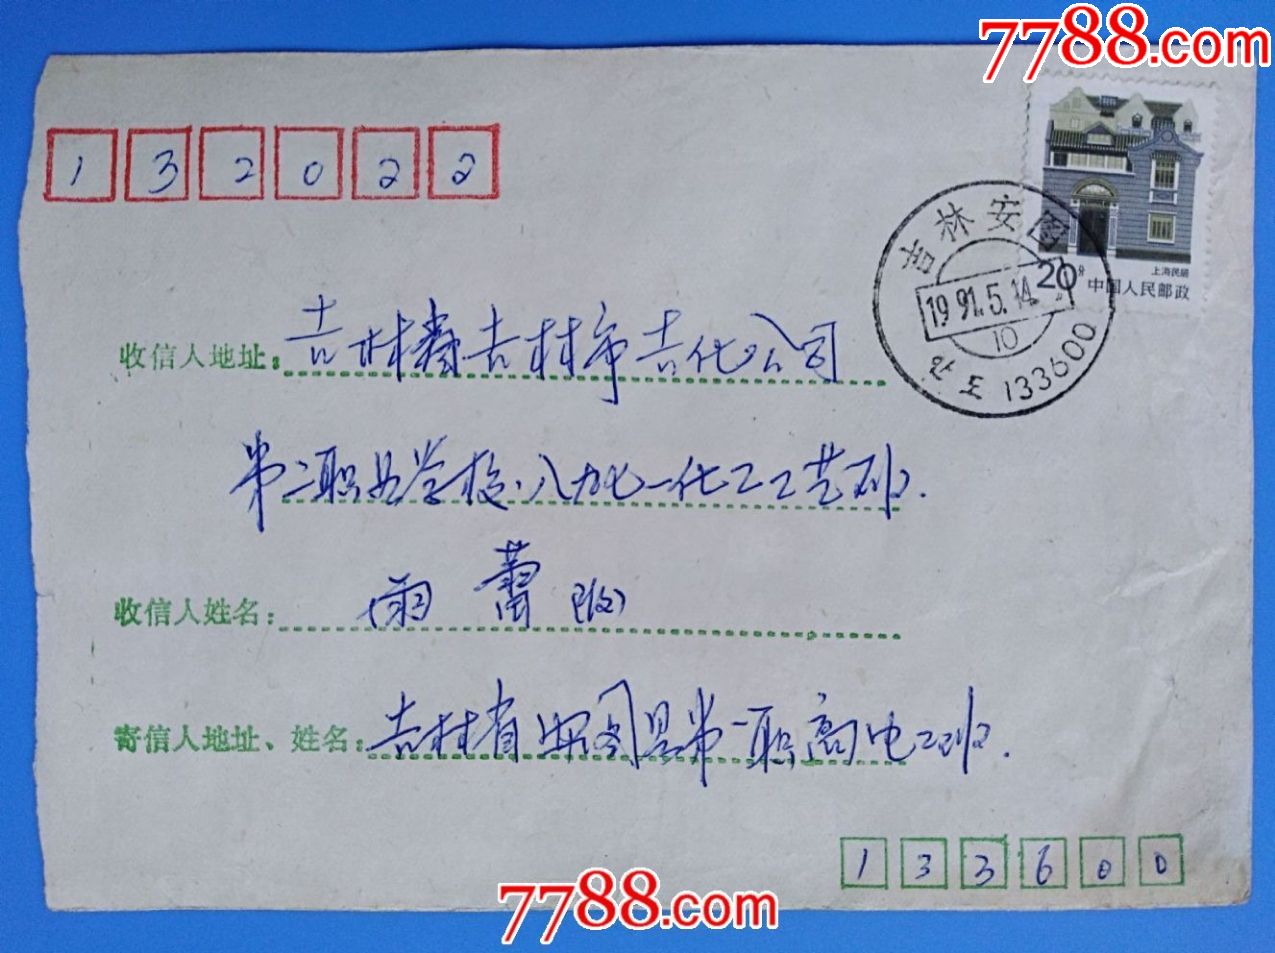 7788.com
132022
上海民居
20分 中国人民邮政
吉林安图
1991.5.14
10
안도 133600
收信人地址: 吉林省吉林市吉化公司
第二职业学校.八九七一化工工艺班.
收信人姓名: 雨蕾 收
寄信人地址、姓名: 吉林省安图县第一职高电工班.
133600
7788.com